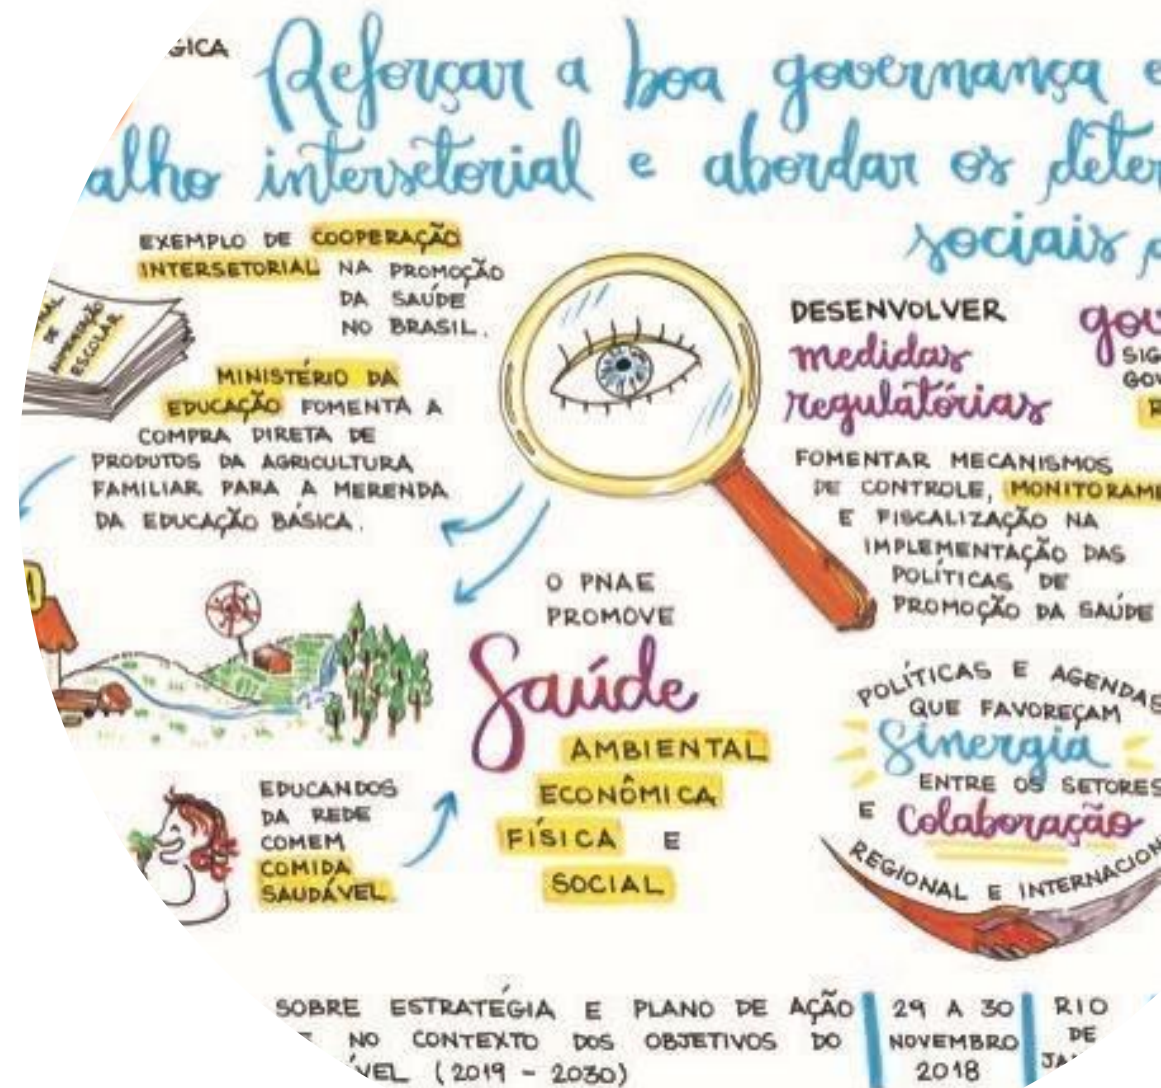 Reforçar a boa governança e
intersetorial e abordar os
sociais
EXEMPLO DE COOPERAÇÃO
INTERSETORIAL NA PROMOÇÃO
DA SAÚDE
NO BRASIL.
DE
ALIMENTAÇÃO
ESCOLAR
MINISTÉRIO DA
EDUCAÇÃO FOMENTA A
COMPRA DIRETA DE
PRODUTOS DA AGRICULTURA
FAMILIAR PARA A MERENDA
DA EDUCAÇÃO BÁSICA.
EDUCANDOS
DA REDE
COMEM
COMIDA
SAUDÁVEL.
O PNAE
PROMOVE
Saúde
AMBIENTAL
ECONÔMICA
FÍSICA E
SOCIAL
DESENVOLVER
medidas
regulatórias
FOMENTAR MECANISMOS
DE CONTROLE, MONITORAME
E FISCALIZAÇÃO NA
IMPLEMENTAÇÃO DAS
POLÍTICAS DE
PROMOÇÃO DA SAÚDE
POLÍTICAS E AGENDAS
QUE FAVOREÇAM
Sinergia
ENTRE OS SETORES
E Colaboração
REGIONAL E INTERNACION
SOBRE ESTRATÉGIA E PLANO DE AÇÃO
NO CONTEXTO DOS OBJETIVOS DO
VEL (2019 - 2030)
29 A 30
NOVEMBRO
2018
RIO
DE